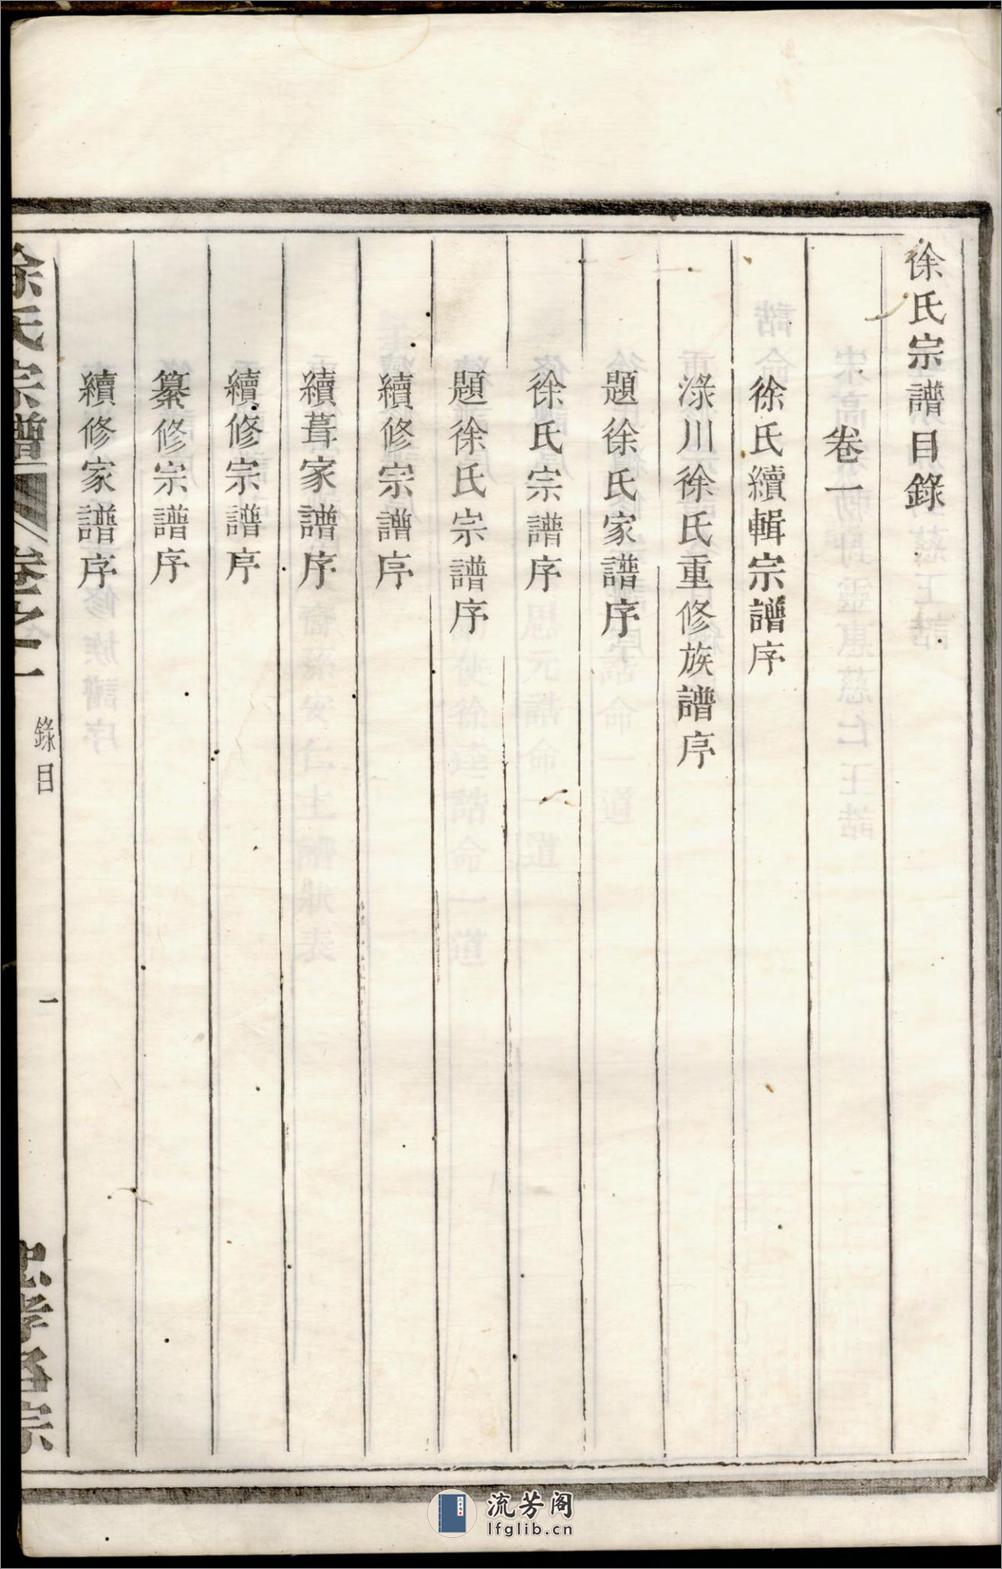 徐氏宗譜目錄
卷一
徐氏續輯宗譜序
淥川徐氏重修族譜序
題徐氏家譜序
徐氏宗譜序
題徐氏宗譜序
續修宗譜序
續葺家譜序
續修宗譜序
纂修宗譜序
續修家譜序
徐氏宗譜
卷之一
錄目
一
流芳阁
lfglib.cn